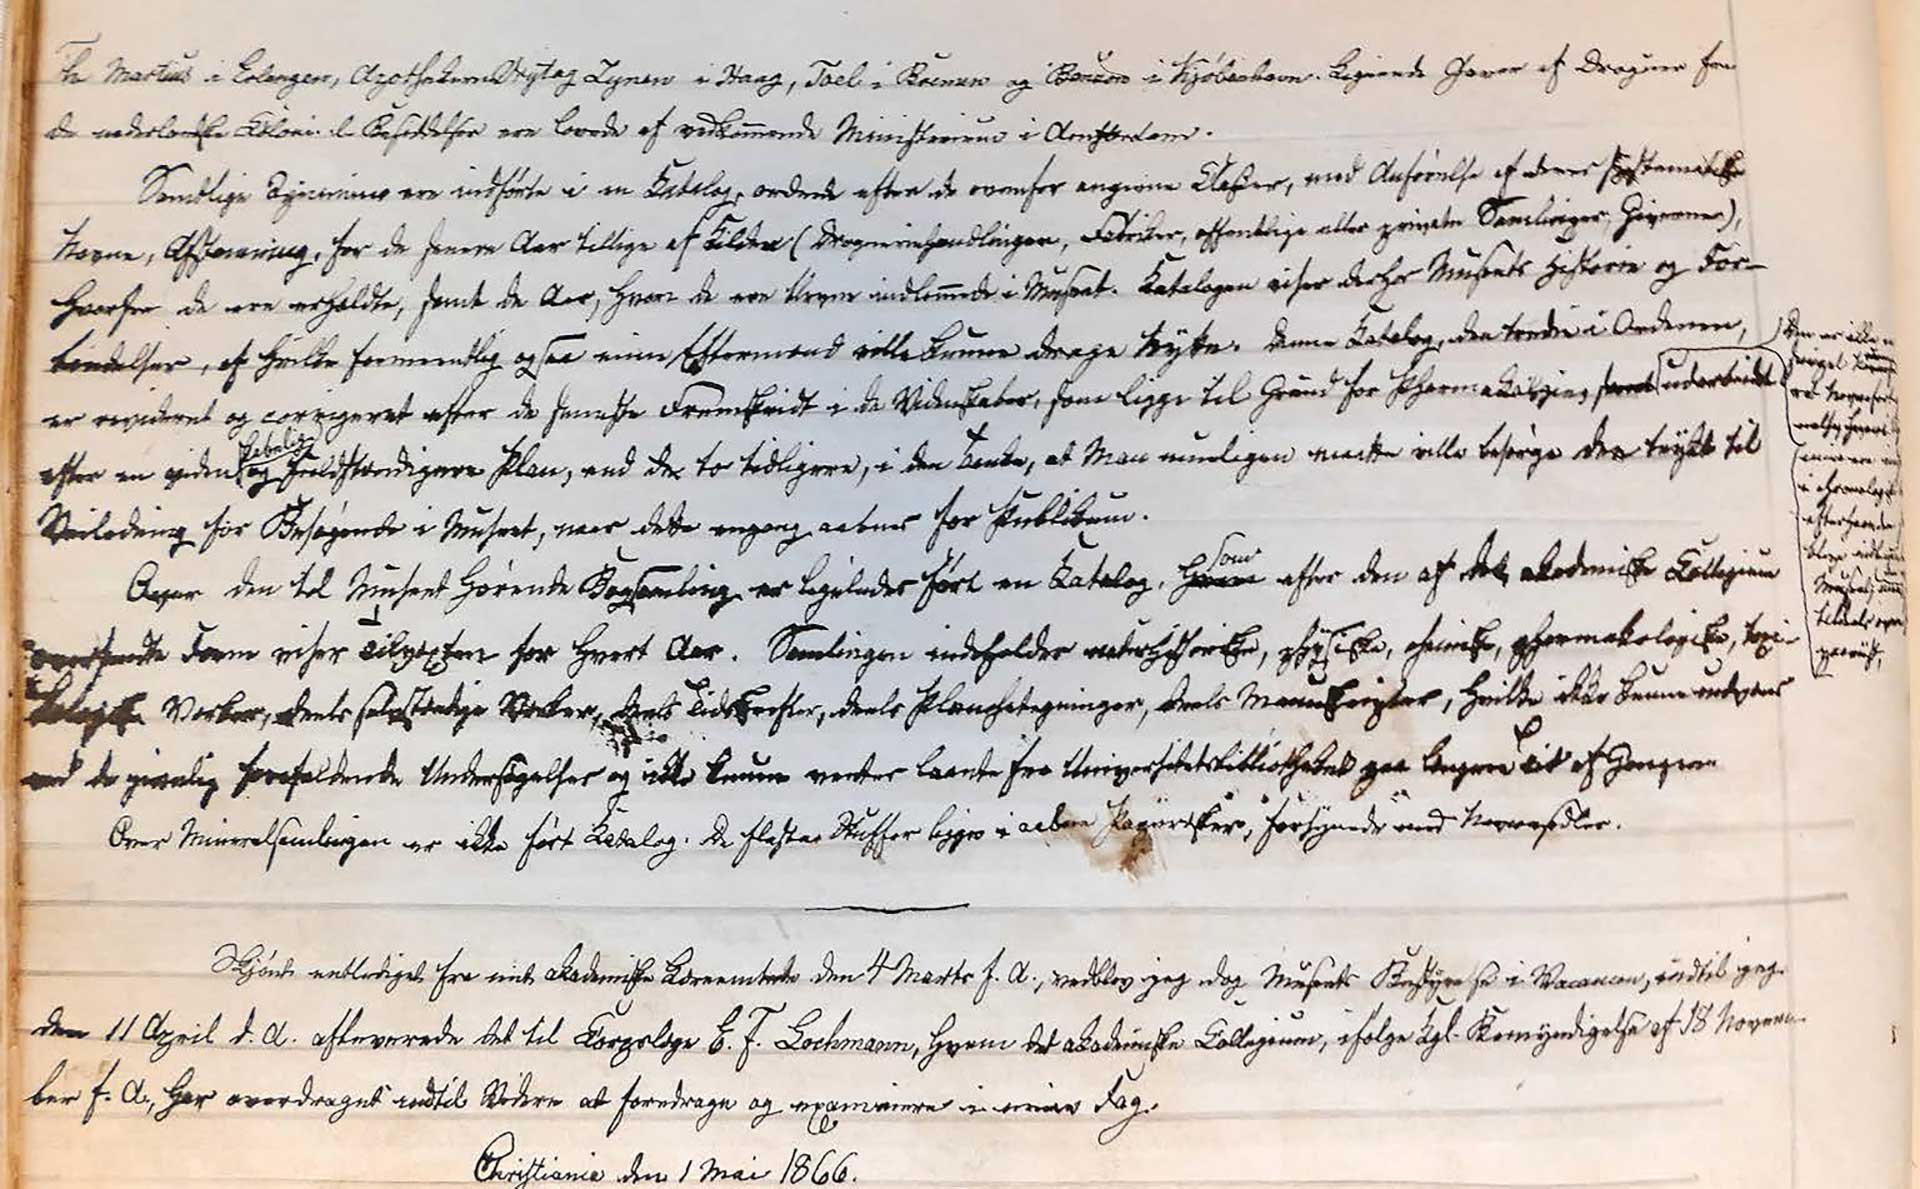 Th Martius i Erlangen, Apothekerne Nytag Lynen i Haag, Toel i Bremen og Benzon i Kjøbenhavn. Lignende Gaver af Droguer fra
de nederlandske Besiddelser ere lovede af vedkommende Ministerium i Amsterdam.
Samtlige ere indførte i en Katalog, ordnede efter de ovenfor angivne Classer, med Anførelse af deres systematiske
Navne, Afstamning, for de senere Aar tillige af Kilden (Drogueriehandlinger, Fabriker, offentlige eller private Samlinger, Giverne),
hvorfra de ere erholdte, samt de Aar, hvori de ere blevne indlemmede i Museet. Katalogen viser derhos Museets Historie og For-
bindelser, af hvilke formeentlig ogsaa min Eftermand ville kunne drage Nytte. Denne Katalog, den tredie i Ordenen,
er revideret og corrigeret efter de seneste Fremskridt i de Videnskaber, som ligge til Grund for Pharmakologien, samt udarbeidet
efter en videnskabelig og fuldstændigere Plan, end de to tidligere, i den Tanke, at Man muligen maatte ville besørge den trykt til
Veiledning for Besøgende i Museet, naar dette engang aabnes for Publikum.
Over den til Museet hørende Bogsamling er ligeledes ført en Katalog, som efter den af det akademiske Collegium
Form viser Tilvexten for hvert Aar. Samlingen indeholder naturhistoriske, physiske, chemiske, pharmakologiske, toxi-
kologiske Værker, deels selvstændige Værker, deels Tidsskrifter, deels Planchetegninger, deels Manuskripter, hvilke ikke kunne undværes
ved de jevnlig forefaldende Undersøgelser og ikke kunne ventes laante fra Universitetsbibliotheket paa længere Tid af Gangen
Over Mineralsamlingen er ikke ført Katalog. De fleste Stuffer ligge i aabne Papiræsker, forsynede med Navnesedler.
Skjønt entlediget fra mit akademiske Læreembede den 4 Marts f. A., vedblev jeg dog Museets Bestyrelse i Vacancen, indtil jeg
den 11 April d. A. afleverede det til Corpslæge E. F. Lochmann, hvem det akademiske Collegium, ifølge Kgl. Bemyndigelse af 18 Novem-
ber f. A., har overdraget indtil Videre at foredrage og examinere i mine Fag.
Christiania den 1 Mai 1866.